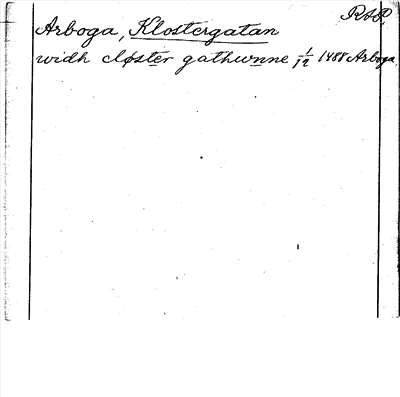 RAP.
Arboga, Klostergatan
widh cløster gathwnne 1/12 1488 Arboga.